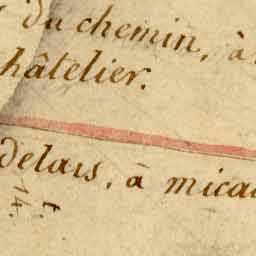 du chemin, à
hâtelier.
delais, à mica